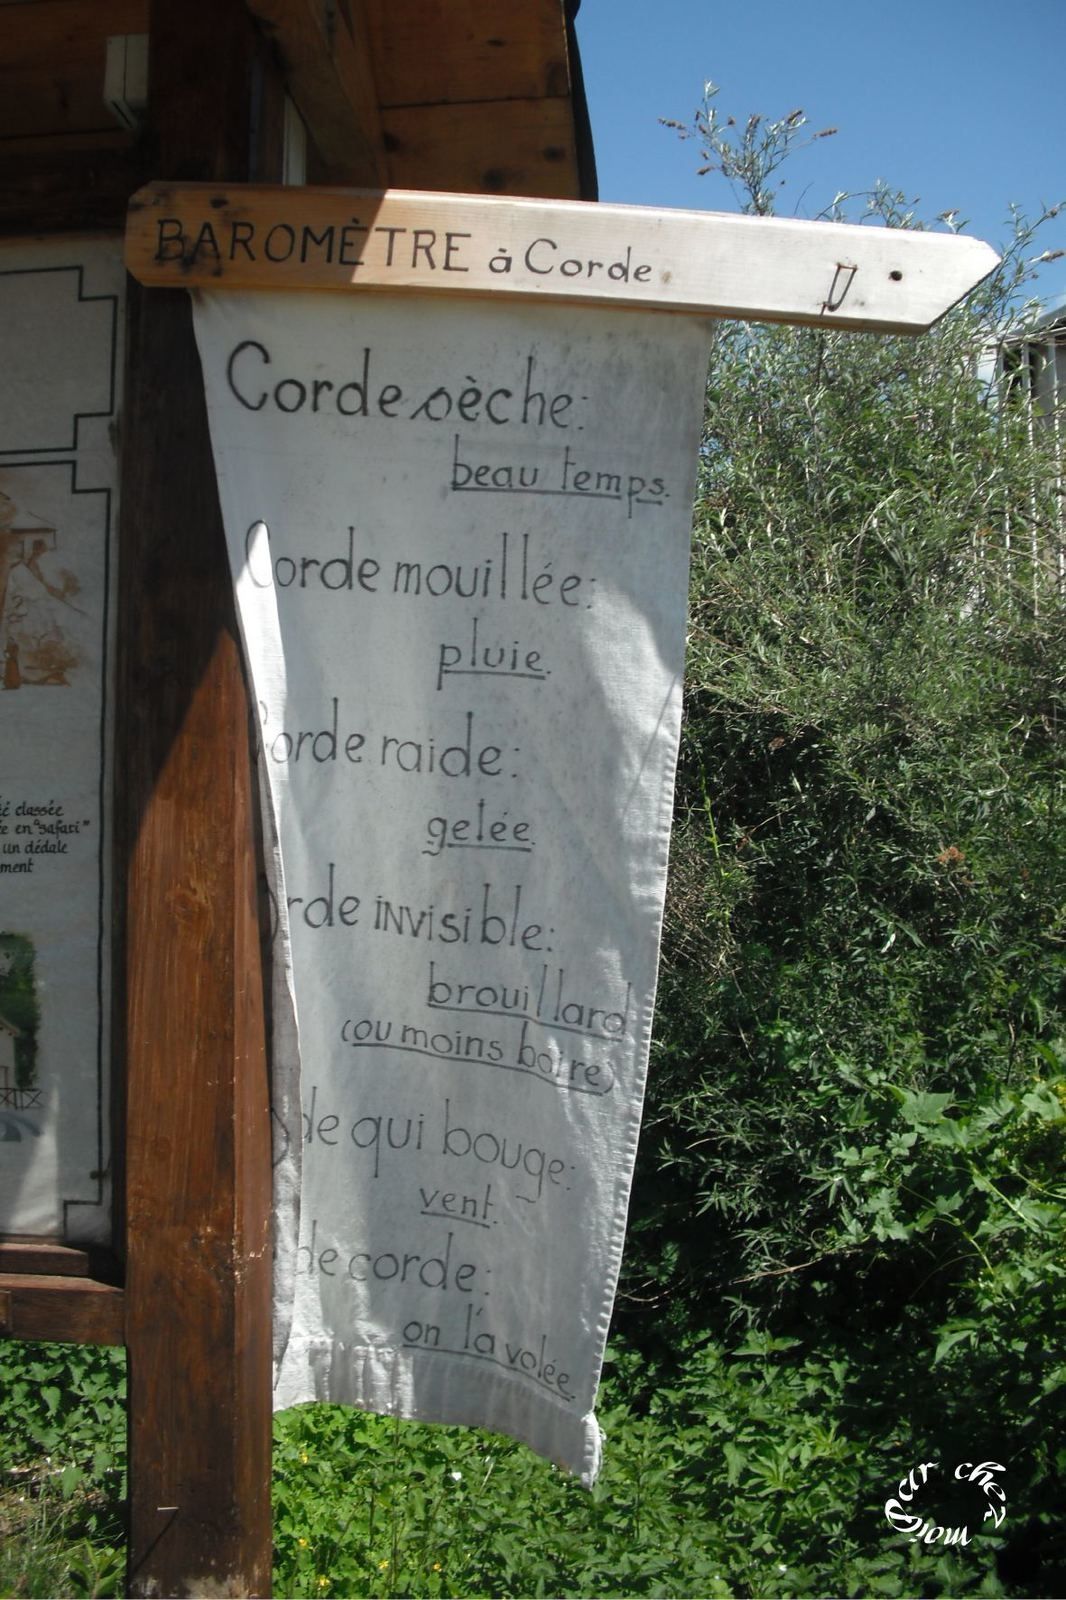 BAROMÈTRE à Corde
Corde sèche:
beau temps.
Corde mouillée:
pluie.
Corde raide:
gelée.
orde invisible:
brouillard
(ou moins boire)
de qui bouge:
vent.
de corde:
on l'a volée.
é classée
e en "safari"
un dédale
ment
Par chez Giom